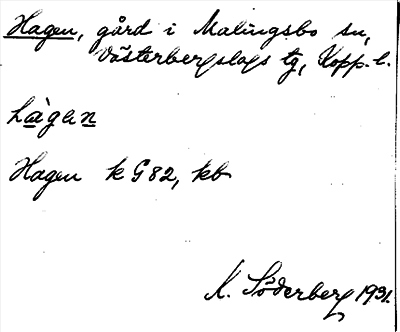 Hagen, gård i Malingsbo sn,
Västerbergslags tg, Kopp. l.
hàgen
Hagen k G82, kb
K. Söderberg 1931.